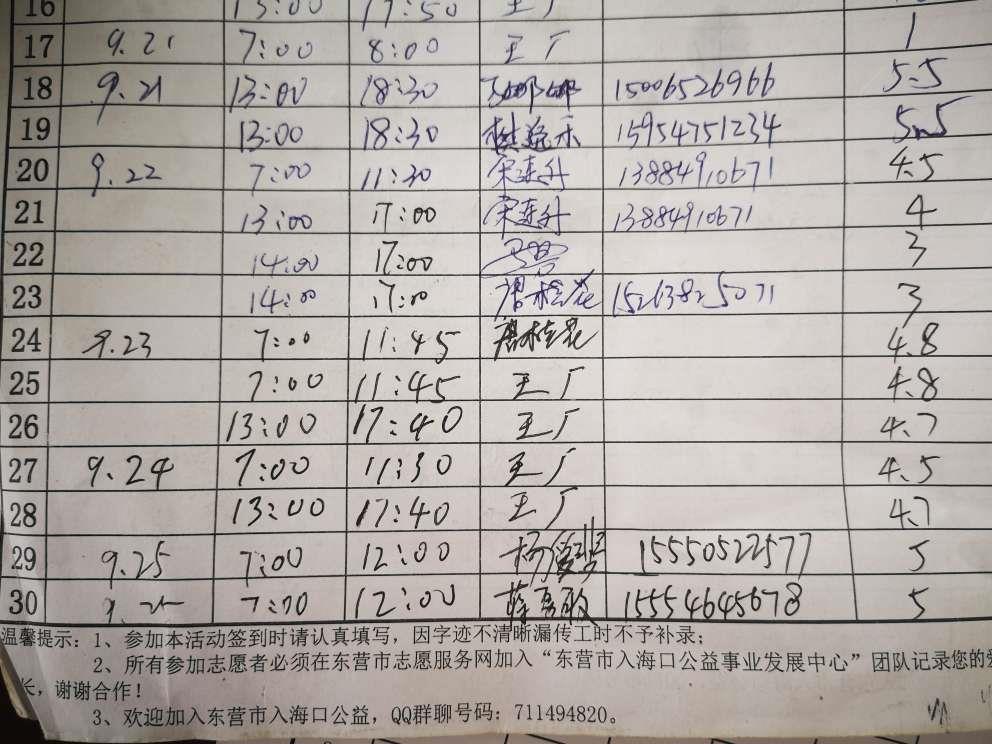 16 13:00 17:50 王厂
17 9.21 7:00 8:00 王厂 1
18 9.21 13:00 18:30 娜娜 15006526966 5.5
19 13:00 18:30 15954751234 5.5
20 9.22 7:00 11:30 宋连升 13884910671 4.5
21 13:00 17:00 宋连升 13884910671 4
22 14:00 17:00 3
23 14:00 17:00 唐桂花 15263825071 3
24 9.23 7:00 11:45 唐桂花 4.8
25 7:00 11:45 王厂 4.8
26 13:00 17:40 王厂 4.7
27 9.24 7:00 11:30 王厂 4.5
28 13:00 17:40 王厂 4.7
29 9.25 7:00 12:00 15550522577 5
30 9.25 7:00 12:00 15554645678 5
温馨提示：1、参加本活动签到时请认真填写，因字迹不清晰漏传工时不予补录；
2、所有参加志愿者必须在东营市志愿服务网加入“东营市入海口公益事业发展中心”团队记录您的
长，谢谢合作！
3、欢迎加入东营市入海口公益，QQ群聊号码：711494820。